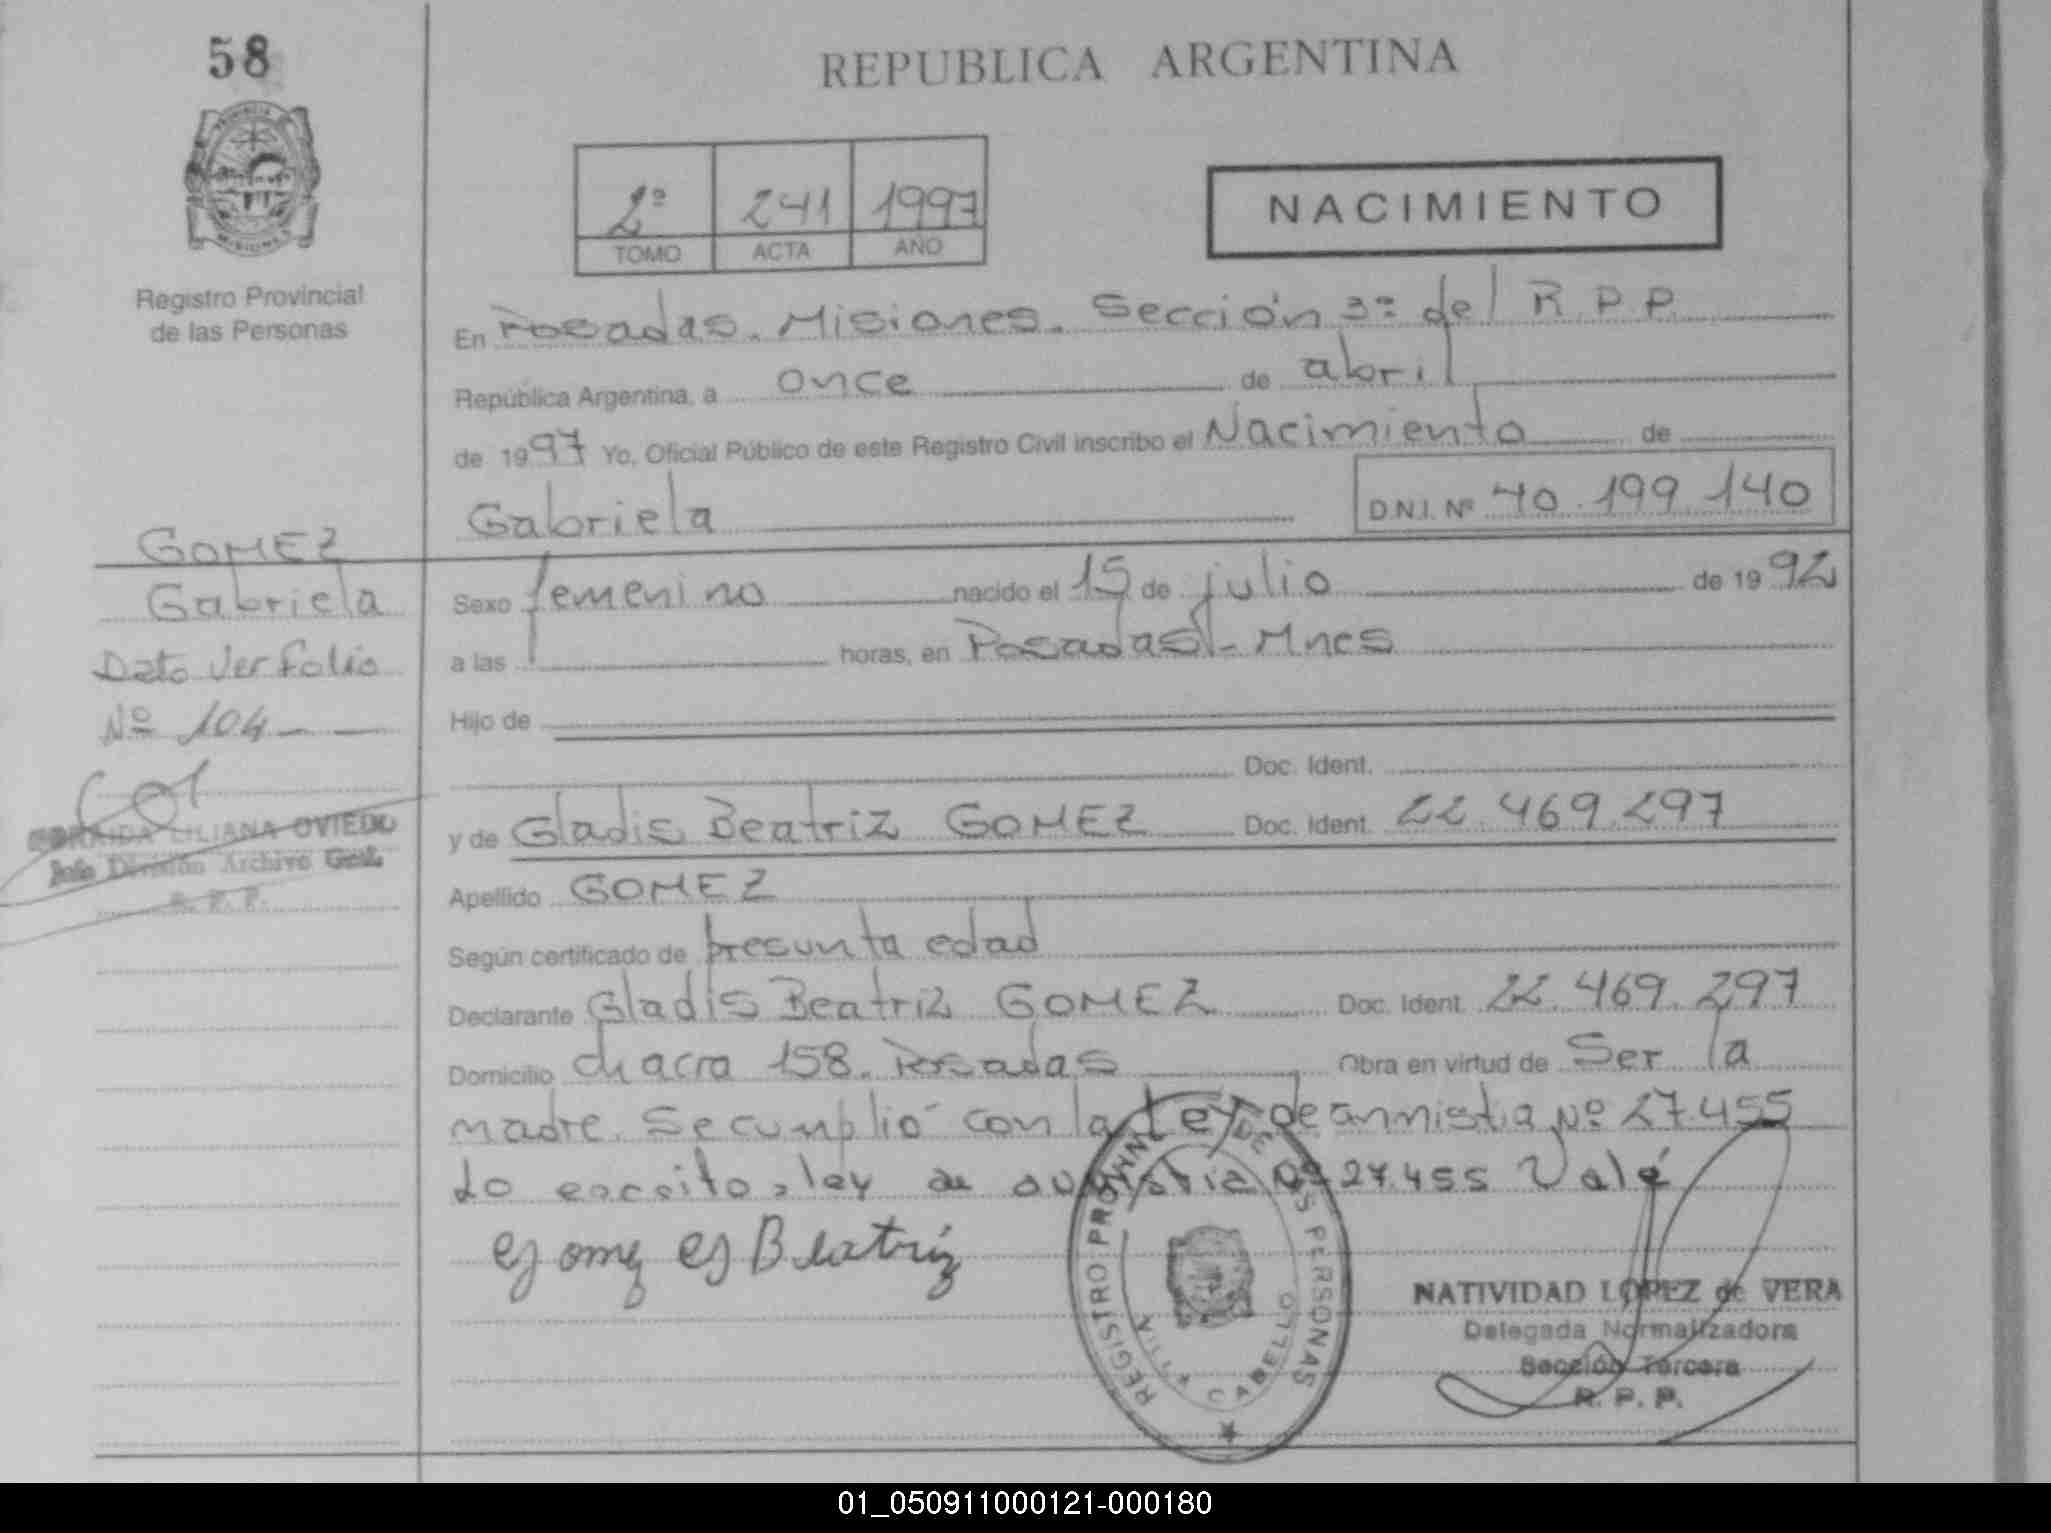 58
REPUBLICA ARGENTINA
PROVINCIA
MISIONES
2º 241 1997
TOMO ACTA AÑO
NACIMIENTO
Registro Provincial
de las Personas
En Posadas. Misiones. Sección 3ª del R.P.P.
República Argentina, a once de abril
de 1997 Yo, Oficial Público de este Registro Civil inscribo el Nacimiento de
Gabriela D.N.I. Nº 40.199.140
GOMEZ
Gabriela
Dato Ver folio
Nº 104
LILIANA OVIEDO
Jefe División Archivo Gral.
R. P. P.
Sexo femenino nacido el 15 de julio de 1992
a las horas, en Posadas - Mnes
Hijo de
Doc. Ident.
y de Gladis Beatriz GOMEZ Doc. Ident. 22.469.297
Apellido GOMEZ
Según certificado de presunta edad
Declarante Gladis Beatriz GOMEZ Doc. Ident. 22.469.297
Domicilio chacra 158. Posadas Obra en virtud de Ser la
madre. Se cumplió con la Ley de amnistia Nº 27.455
Lo escrito, ley de Nº 27.455 Vale
Gomez G Beatriz
REGISTRO PROVINCIAL DE LAS PERSONAS
CABELLO
NATIVIDAD LOPEZ de VERA
Delegada Normalizadora
Sección Tercera
R. P. P.
01_050911000121-000180